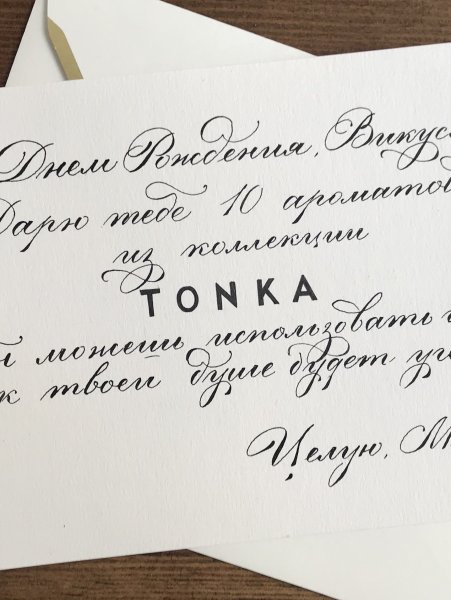 Днем Рождения, Викус
Дарю тебе 10 ароматов
из коллекции
TONKA
можешь использовать
к твоей душе будет уг
Целую, М